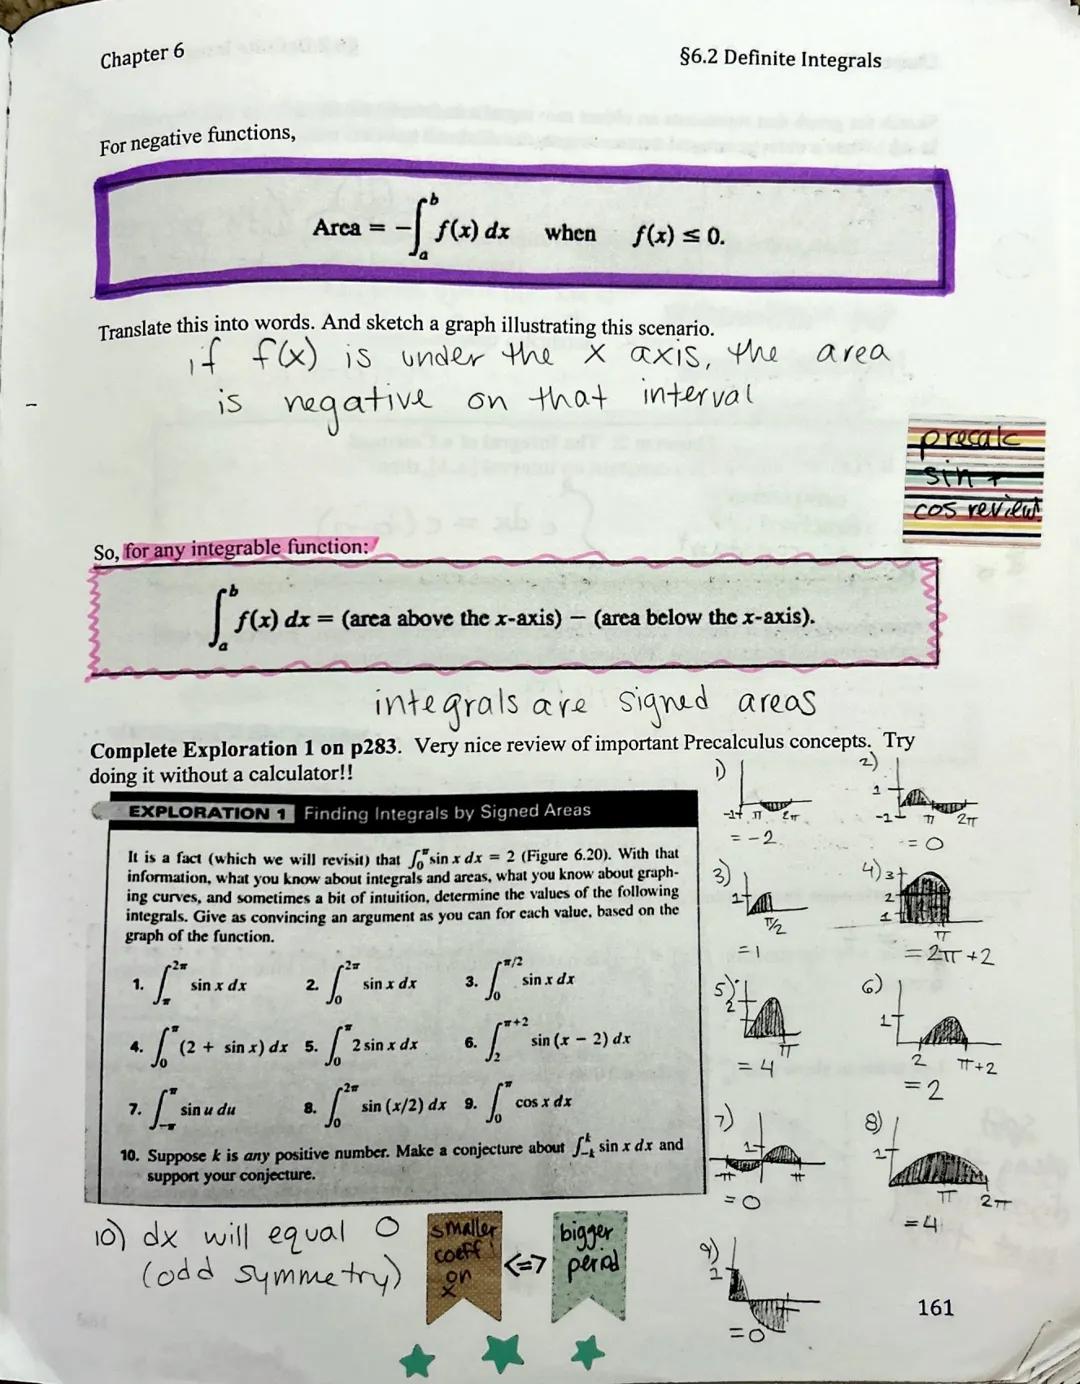 Chapter 6
§6.2 Definite Integrals
For negative functions,
Area = −∫_a^b f(x) dx when f(x) ≤ 0.
Translate this into words. And sketch a graph illustrating this scenario.
if f(x) is under the x axis, the area
is negative on that interval
precalc
sin +
cos review
So, for any integrable function:
∫_a^b f(x) dx = (area above the x-axis) − (area below the x-axis).
integrals are signed areas
Complete Exploration 1 on p283. Very nice review of important Precalculus concepts. Try
doing it without a calculator!!
EXPLORATION 1 Finding Integrals by Signed Areas
It is a fact (which we will revisit) that ∫_0^π sin x dx = 2 (Figure 6.20). With that
information, what you know about integrals and areas, what you know about graph-
ing curves, and sometimes a bit of intuition, determine the values of the following
integrals. Give as convincing an argument as you can for each value, based on the
graph of the function.
1. ∫_π^2π sin x dx 2. ∫_0^2π sin x dx 3. ∫_0^π/2 sin x dx
4. ∫_0^π (2 + sin x) dx 5. ∫_0^π 2 sin x dx 6. ∫_2^π+2 sin (x − 2) dx
7. ∫_−π^π sin u du 8. ∫_0^2π sin (x/2) dx 9. ∫_0^π cos x dx
10. Suppose k is any positive number. Make a conjecture about ∫_−k^k sin x dx and
support your conjecture.
1)
-1 π 2π
= -2
2)
1
-1 π 2π
= 0
3)
1
π/2
= 1
4)
3
2
1
π
= 2π + 2
5)
2
π
= 4
6)
1
2 π+2
= 2
7)
1
-π π
= 0
8)
1
π 2π
= 4
9)
1
= 0
10) dx will equal 0
(odd symmetry)
smaller
coeff
on
x
<=>
bigger
period
161